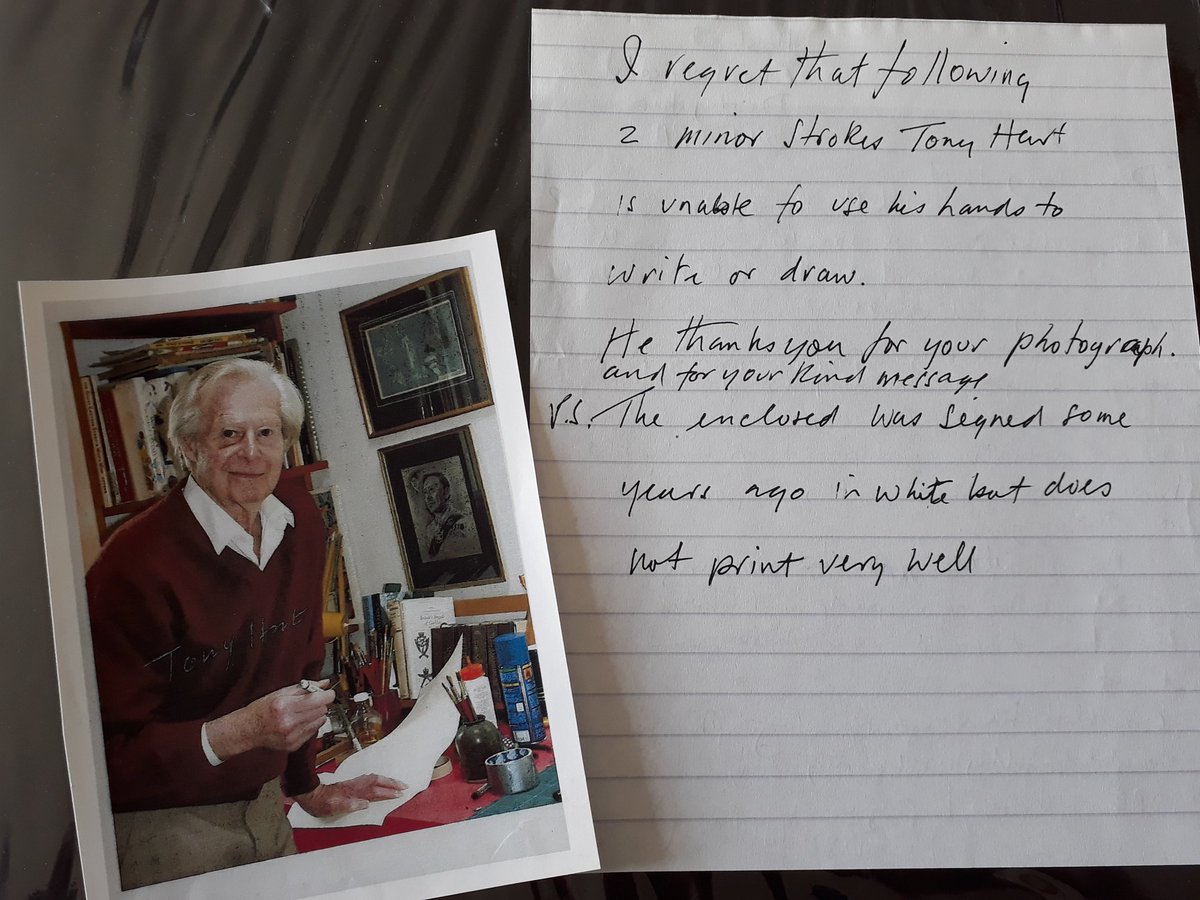 Tony Hart
I regret that following
2 minor strokes Tony Hart
is unable to use his hands to
write or draw.
He thanks you for your photograph.
and for your kind message
P.S. The enclosed was signed some
years ago in white but does
not print very well